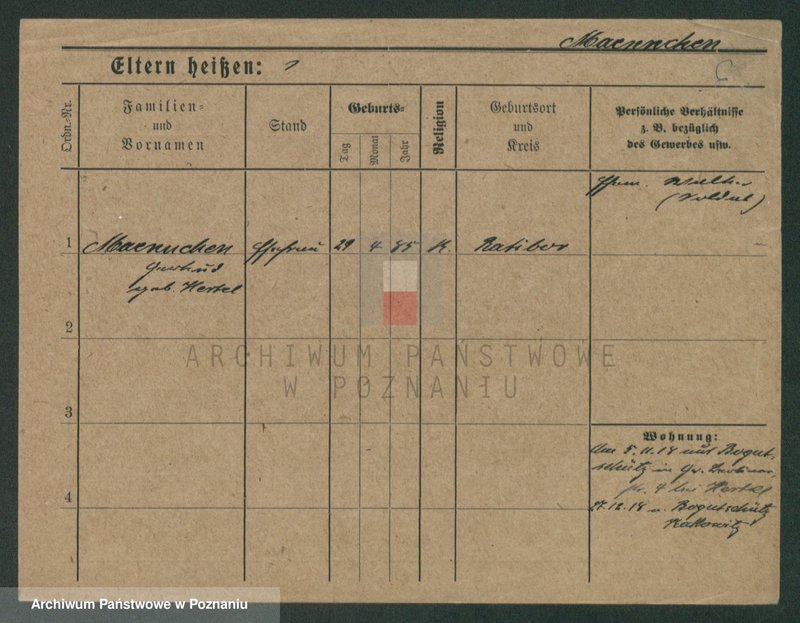 Maennchen
Eltern heißen:
Ordn.-Nr.
Familien-
und
Vornamen
Stand
Geburts-
Tag
Monat
Jahr
Religion
Geburtsort
und
Kreis
Persönliche Verhältnisse
z. B. bezüglich
des Gewerbes usw.
1
Maennchen
Ehefrau
29
4
85
K.
Ratibor
Gertrud
geb. Hertel
2
ARCHIWUM PAŃSTWOWE
W POZNANIU
3
4
Wohnung:
Am 5.11.18 aus Bogut-
schütz in
4 bei Hertel
27.12.18 n. Bogutschütz
Kattowitz
Archiwum Państwowe w Poznaniu